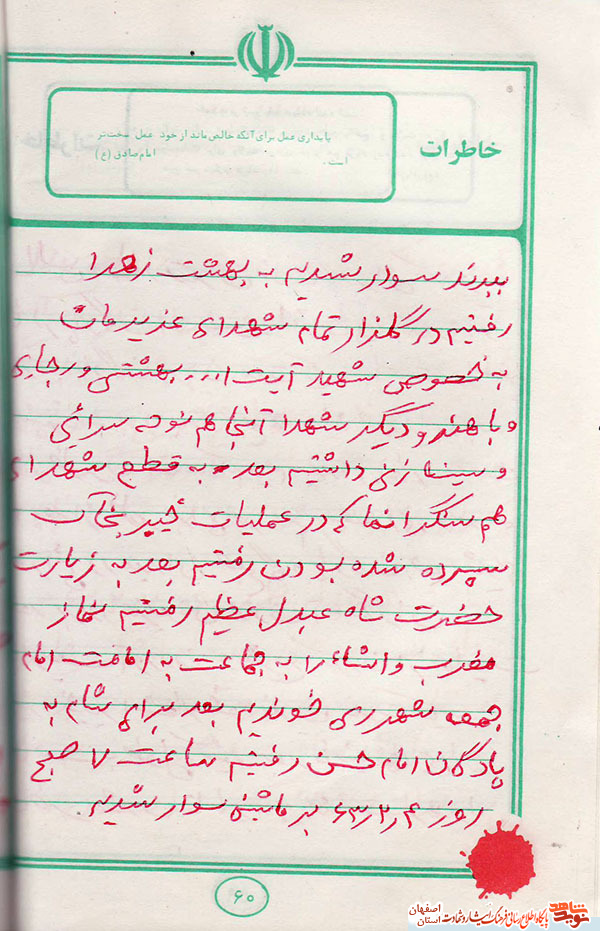 خاطرات
پایداری عمل برای آنکه خالص ماند از خود عمل سخت تر
است. امام صادق (ع)
ببرند سوار شدیم به بهشت زهرا
رفتیم در گلذار تمام شهدای عزیزمان
به خصوص شهید آیت ا... بهشتی و رجای
و باهنر و دیگر شهدا آنجا هم نوحه سرائی
و سینا زنی داشتیم بعد به قطع شهدای
هم سنگرانما که در عملیات خیبر بخاک
سپرده شده بودن رفتیم بعد به زیارت
حضرت شاه عبدل عظیم رفتیم نماز
مغرب و اشاء را به جماعت به امامت امام
جمعه شهرری خوندیم بعد برای شام به
پادگان امام حسن رفتیم ساعت ۷ صبح
روز ۶۳/۲/۴ بر ماشین سوار شدیم
۶۰
نوید شاهد
پایگاه اطلاع رسانی فرهنگ ایثار و شهادت
استان اصفهان